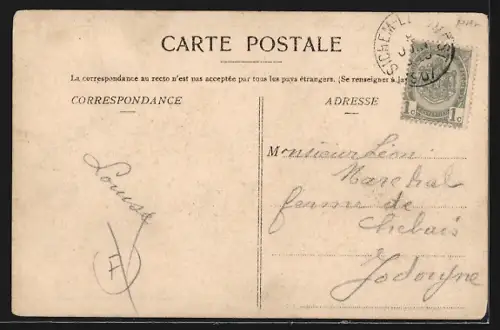 CARTE POSTALE
La correspondance au recto n'est pas acceptée par tous les pays étrangers. (Se renseigner à la
CORRESPONDANCE
ADRESSE
1c 1c
1907
Louise
Monsieur Léon
Maréchal
ferme de
Chebais
Jodoigne